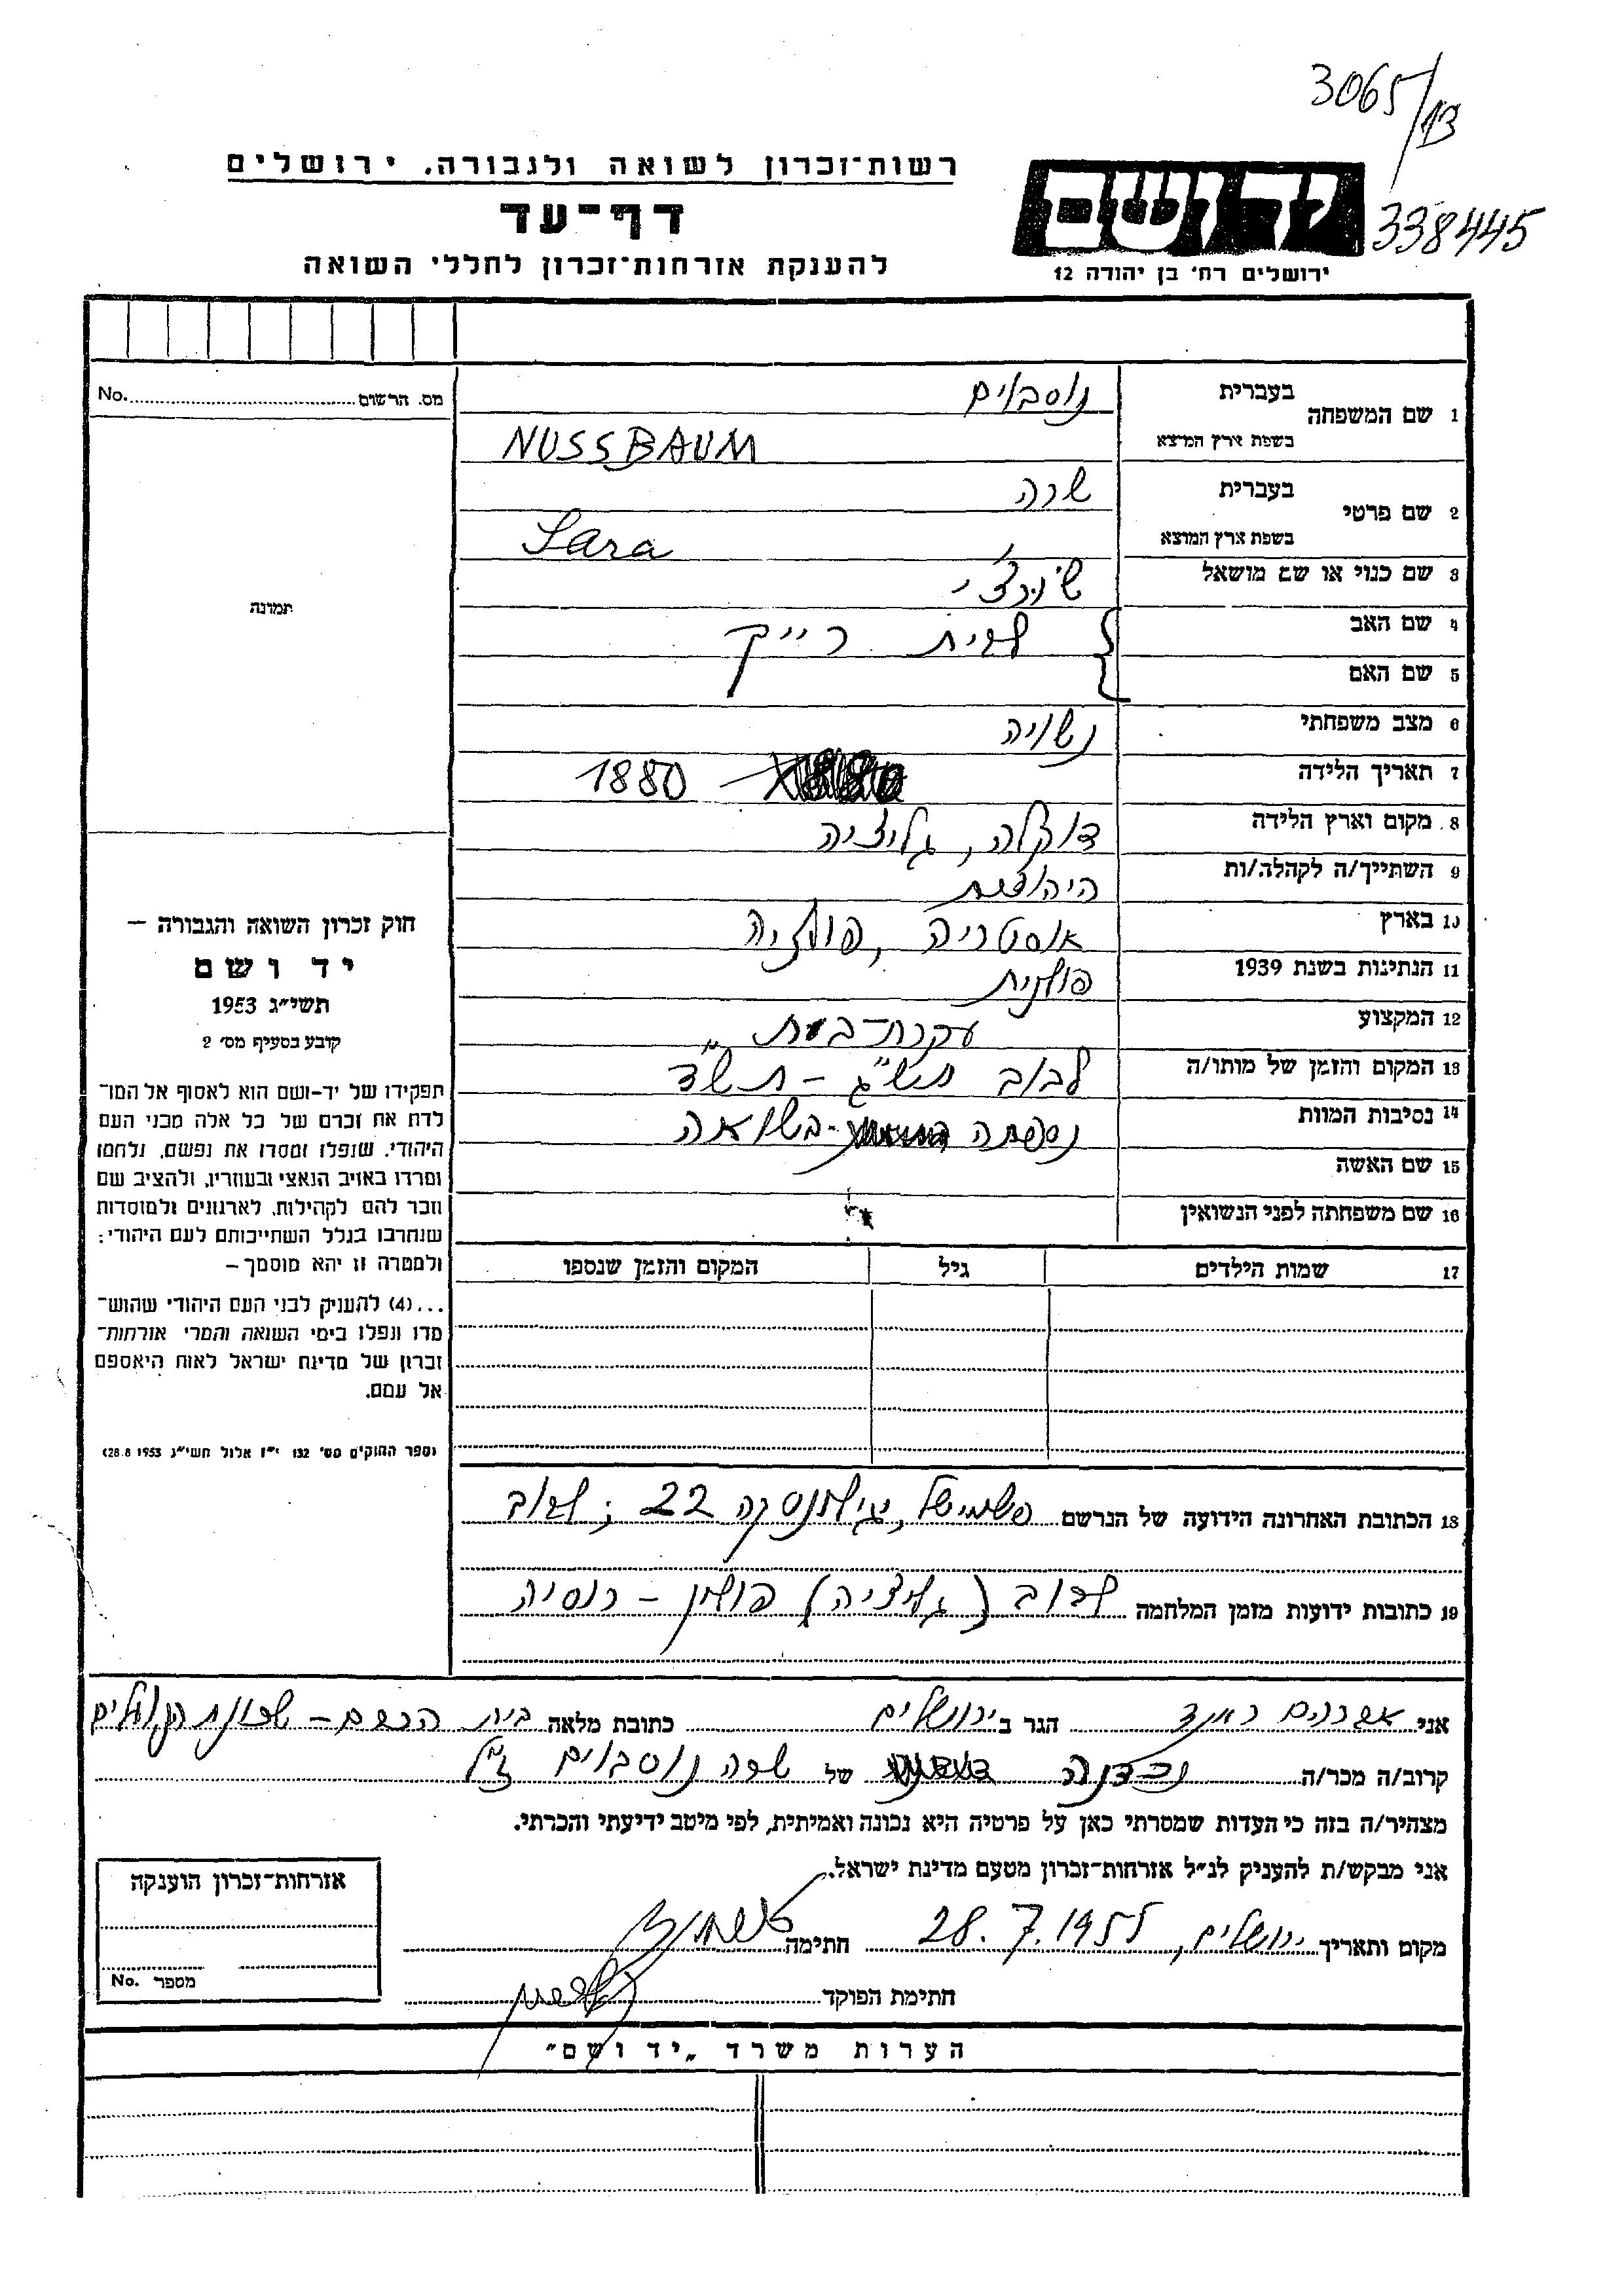 3065/13
רשות־זכרון לשואה ולגבורה, ירושלים
דף־עד
להענקת אזרחות־זכרון לחללי השואה
יד ושם
338445
ירושלים רח' בן יהודה 12
מס. הרשום No.
1 שם המשפחה בעברית נוסבוים
בשפת ארץ המוצא NUSSBAUM
2 שם פרטי בעברית שרה
בשפת ארץ המוצא Sara
3 שם כנוי או שם מושאל
4 שם האב לבית רייך
5 שם האם
6 מצב משפחתי נשויה
7 תאריך הלידה 1880
8. מקום וארץ הלידה דוקלה, גליציה
9 השתייך/ה לקהלה/ות היהודית
10 בארץ אוסטריה, פולניה
11 הנתינות בשנת 1939 פולנית
12 המקצוע עקרת־בית
13 המקום והזמן של מותו/ה לבוב תש"ג - תשד
14 נסיבות המוות נספתה בשואה
15 שם האשה
16 שם משפחתה לפני הנשואין
17 שמות הילדים גיל המקום והזמן שנספו
תמונה
חוק זכרון השואה והגבורה —
יד ושם
תשי"ג 1953
קובע בסעיף מס' 2
תפקידו של יד-ושם הוא לאסוף אל המו־
לדת את זכרם של כל אלה מבני העם
היהודי, שנפלו ומסרו את נפשם, נלחמו
ומרדו באויב הנאצי ובעוזריו, ולהציב שם
וזכר להם לקהילות, לארגונים ולמוסדות
שנחרבו בגלל השתייכותם לעם היהודי:
ולמטרה זו יהא מוסמך –
...(4) להעניק לבני העם היהודי שהוש־
מדו ונפלו בימי השואה והמרי אזרחות־
זכרון של מדינת ישראל לאות היאספם
אל עמם.
(ספר החוקים מס' 132 י"ז אלול תשי"ג 28.8.1953)
18 הכתובת האחרונה הידועה של הנרשם פשמישל, 22 ; לבוב
19 כתובות ידועות מזמן המלחמה לבוב (גליציה) פולין – רוסיה
אני אברהם הגר ב ירושלים כתובת מלאה בית הכרם – שכונת
קרוב/ה מכר/ה נכדנה של שרה נוסבוים ז"ל
מצהיר/ה בזה כי העדות שמסרתי כאן על פרטיה היא נכונה ואמיתית, לפי מיטב ידיעתי והכרתי.
אני מבקש/ת להעניק לנ"ל אזרחות־זכרון מטעם מדינת ישראל.
מקום ותאריך ירושלים, 28.7.1955 חתימה
חתימת הפוקד
אזרחות־זכרון הוענקה
מספר No.
הערות משרד „יד ושם"